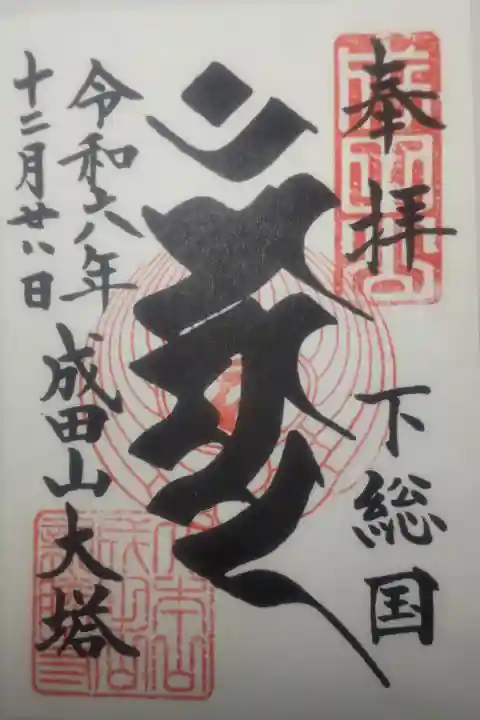 奉拝
成田山
下総国
令和六年
十二月廿八日
成田山大塔